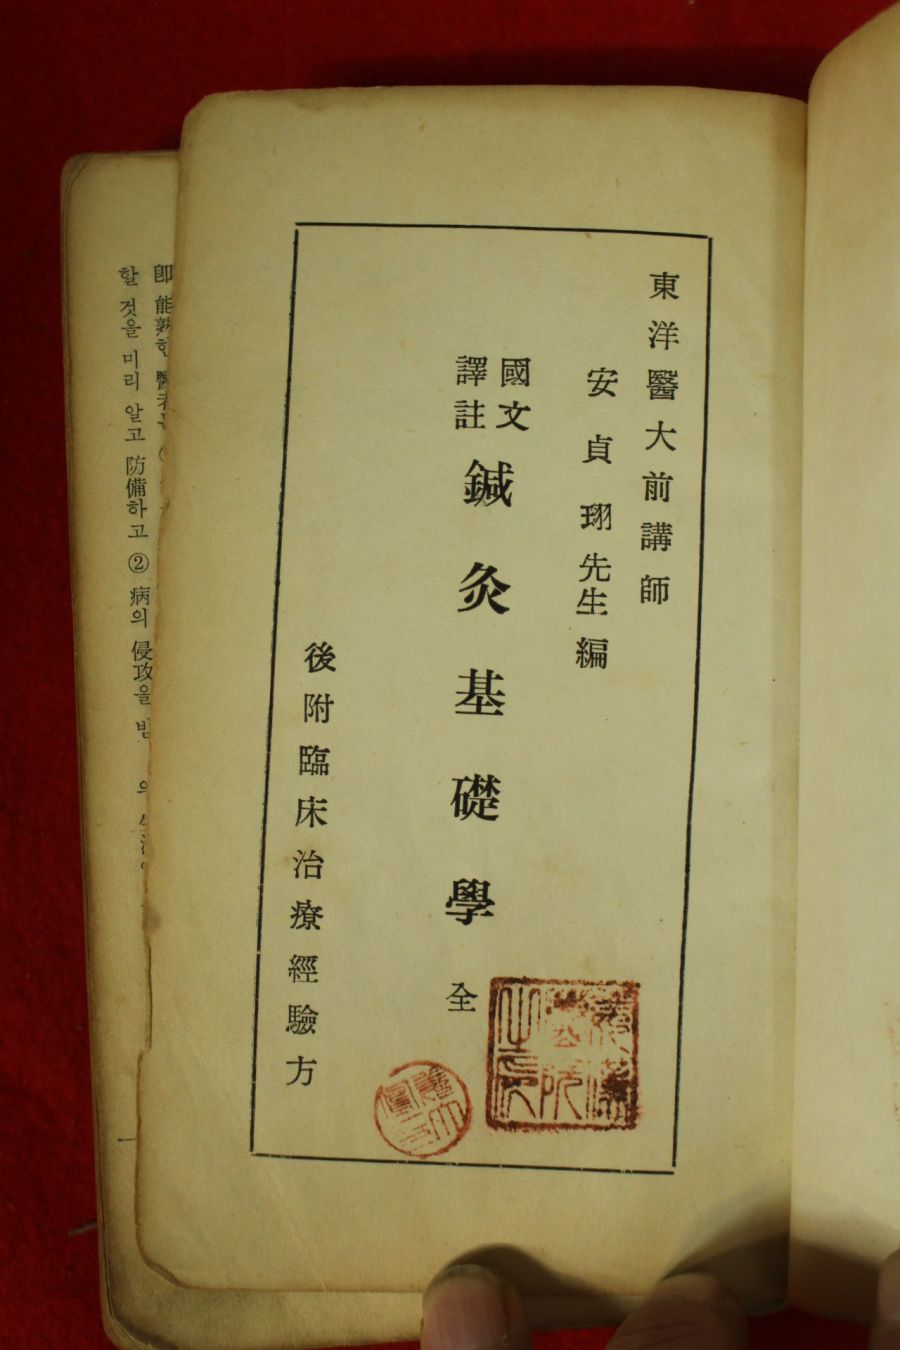 東洋醫大前講師
安貞珝先生編
國文
譯註
鍼灸基礎學 全
後附臨床治療經驗方
卽 能熟한 醫者는
할 것을 미리 알고 防備하고 ② 病의 侵攻을